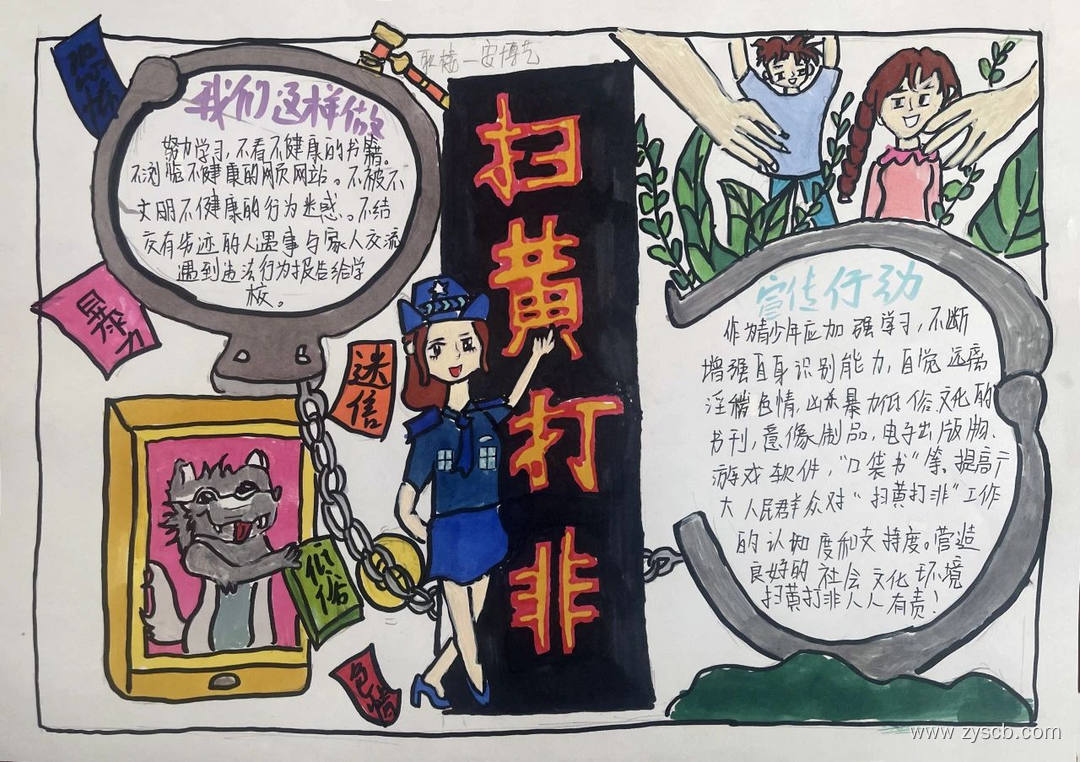 我们这样做
努力学习,不看不健康的书籍。
不浏览不健康的网页网站。不被不
文明不健康的行为迷惑。不结
交有劣迹的人遇事与家人交流
遇到违法行为报告给学
校。
暴力
迷信
低俗
色情
扫
黄
打
非
宣传行动
作为青少年应加强学习,不断
增强自身识别能力,自觉远离
淫秽色情,凶杀暴力低俗文化的
书刊,意像制品,电子出版物、
游戏软件,"口袋书"等、提高广
大人民群众对"扫黄打非"工作
的认知度和支持度。营造
良好的社会文化环境
扫黄打非人人有责!
www.zyscb.com